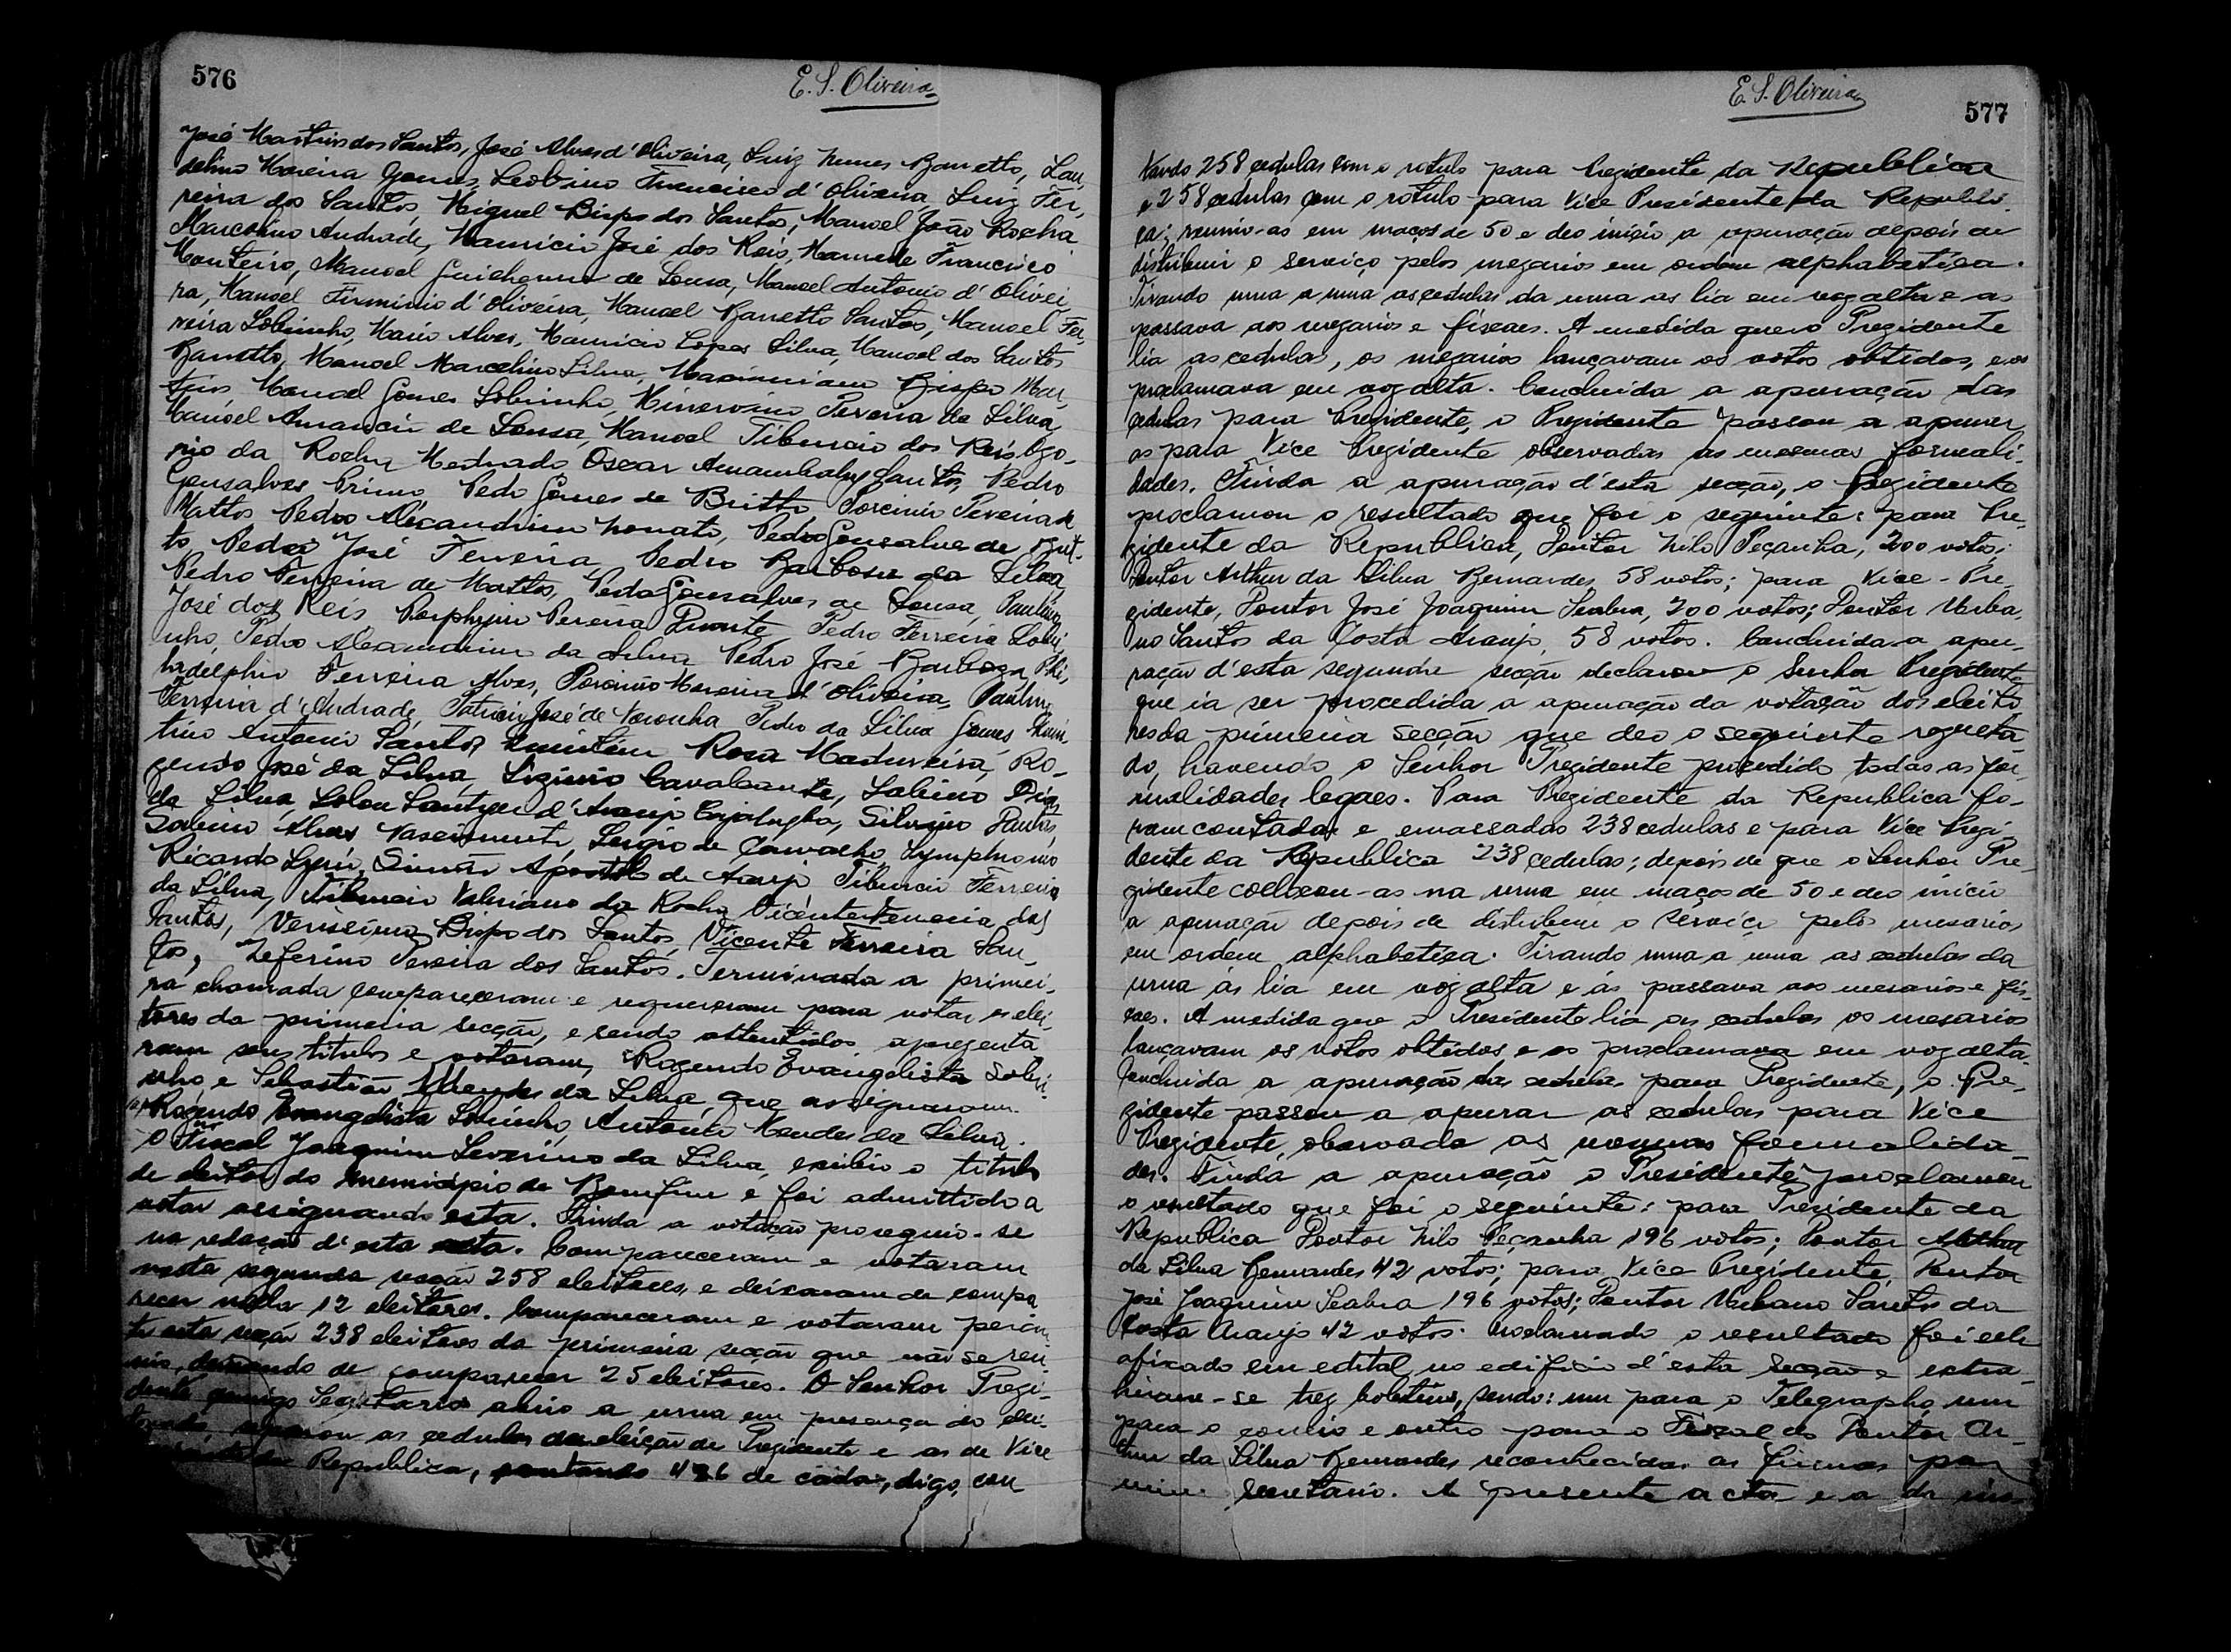 576
E. S. Oliveira
José Martins dos Santos, José Alves d'Oliveira, Luiz Nunes Barretto, Lau-
delino Moreira Gomes, Leobino Francisco d'Oliveira, Luiz Fer-
reira dos Santos, Miguel Bispo dos Santos, Manoel João Rocha
Marcolino Andrade, Mauricio José dos Reis, Mamede Francisco
Monteiro, Manoel Guilherme de Sousa, Manoel Antonio d'Olivei
ra, Manoel Firminio d'Oliveira, Manoel Barretto Santos, Manoel Fer-
reira Sobrinho, Mario Alves, Mauricio Lopes Silva, Manoel dos Santos
Barretto, Manoel Marcelino Silva, Maximiano Bispo Mar-
tins, Manoel Gomes Sobrinho, Minervino Pereira da Silva,
Manoel Amancio de Sousa, Manoel Tiburcio dos Reis, Ogo-
rio da Rocha Medrado, Oscar Santos, Pedro
Gonsalves Primo, Pedro Gomes de Britto, Porcinio Pereira de
Mattos, Pedro Alexandrino Nonato, Pedro Gonsalves de
to, Pedro José Ferreira, Pedro Barbosa da Silva,
Pedro Ferreira de Mattos, Pedro Gonsalves de Sousa, Paulino
José dos Reis, Porphyrio Pereira Duarte, Pedro Ferreira Sobri
nho, Pedro Alexandrino da Silva, Pedro José Barboza, Phi-
ladelphio Ferreira Alves, Porcinio Moreira d'Oliveira, Paulino
Ferreira d'Andrade, Patricio José de Noronha, Pedro da Silva Gomes,
tino Antonio Santos, Quintino Rosa Madureira, Ro-
gendo José da Silva, Liginio Cavalcante, Sabino Dias
da Silva, Solon Santyer d'Araujo Cajatugba, Silvino Santos,
Sabino Alves Nascimento, Sergio de Carvalho, Symphronio
Ricardo Lyrio, Simão Apostolo de Araujo, Tiburcio Ferreira
da Silva, Tiburcio Valeriano da Rocha, Vicente Ferreira dos
Santos, Verissimo Bispo dos Santos, Vicente Ferreira San-
tos, Zeferino Pereira dos Santos. Terminada a primei-
ra chamada compareceram e requereram para votar os elei-
tores da primeira secção, e sendo attendidos, apregenta
ram seus titulos e votaram, Rogendo Evangelista Sobri-
nho e Sebastião Mendes da Silva, que assignaram.
(a) Rogendo Evangelista Sobrinho, Antonio Mendes da Silva.
O fiscal Joaquim Severino da Silva, exibio o titulo
de eleitor do municipio de Bomfim e foi admittido a
votar assignando esta. Finda a votação proseguio-se
na redação d'esta acta. Compareceram e votaram
nesta segunda secção 258 eleitores, e deixaram de compa
recer nella 12 eleitores. Compareceram e votaram peran
te esta secção 238 eleitores da primeira secção que não se reu
nio, deixando de comparecer 25 eleitores. O Senhor Pregi-
dente comigo Secretario abrio a urna em presença do elei-
torado, separou as cedulas da eleição de Pregidente e as de Vice
Republica, contando 496 de cada, digo, con
E. S. Oliveira
577
tando 258 cedulas com o rotulo para Pregidente da Republica
e 258 cedulas com o rotulo para Vice Presidente da Republi-
ca; reunio-as em maços de 50 e deo inicio a apuração depois de
distribuir o serviço pelos megarios em ordem alphabetica.
Tirando uma a uma as cedulas da urna as lia em vog alta e as
passava aos megarios e fiscaes. A medida que o Pregidente
lia as cedulas, os megarios lançavam os votos obtidos, e os
proclamava em vog alta. Concluida a apuração das
cedulas para Pregidente, o Pregidente passou a apurar
as para Vice Pregidente observadas as mesmas formali-
dades. Finda a apuração d'esta secção, o Pregidente
proclamou o resultado que foi o seguinte: para Pre-
gidente da Republica, Doutor Nilo Peçanha, 200 votos;
Doutor Arthur da Silva Bernardes 58 votos; para Vice-Pre-
gidente, Doutor José Joaquim Seabra, 200 votos; Doutor Urba-
no Santos da Costa Araujo, 58 votos. Concluida a apu-
ração d'esta segunda secção declarou o Senhor Pregidente
que ia ser procedida a apuração da votação dos eleito
res da primeira secção que deo o seguinte regulta-
do, havendo o Senhor Pregidente procedido todas as for-
malidades legaes. Para Pregidente da Republica fo-
ram contadas e emassadas 238 cedulas e para Vice Pregi-
dente da Republica 238 cedulas; depois de que o Senhor Pre-
gidente collocou-as na urna em maços de 50 e deo inicio
a apuração depois de distribuir o serviço pelos mesarios
em ordem alphabetica. Tirando uma a uma as cedulas da
urna ás lia em vog alta e ás passava aos mesarios e fis-
caes. A medida que o Presidente lia as cedulas os mesarios
lançavam os votos obtidos e os proclamava em vog alta.
Concluida a apuração das cedulas para Pregidente, o Pre-
gidente passou a apurar as cedulas para Vice
Pregidente, observada as mesmas formalida-
des. Finda a apuração o Presidente proclamou
o resultado que foi o seguinte: para Presidente da
Republica Doutor Nilo Peçanha 196 votos; Doutor Arthur
da Silva Bernardes 42 votos; para Vice Pregidente, Doutor
José Joaquim Seabra 196 votos; Doutor Urbano Santos da
Costa Araujo 42 votos. Proclamado o resultado foi elle
afixado em edital no edificio d'esta secção e extra-
hiram-se treg boletins, sendo: um para o Telegrapho, um
para o correio e outro para o Fiscal do Doutor Ar-
thur da Silva Bernardes reconhecidas as firmas por
mim secretario. A presente acta e a da ins-